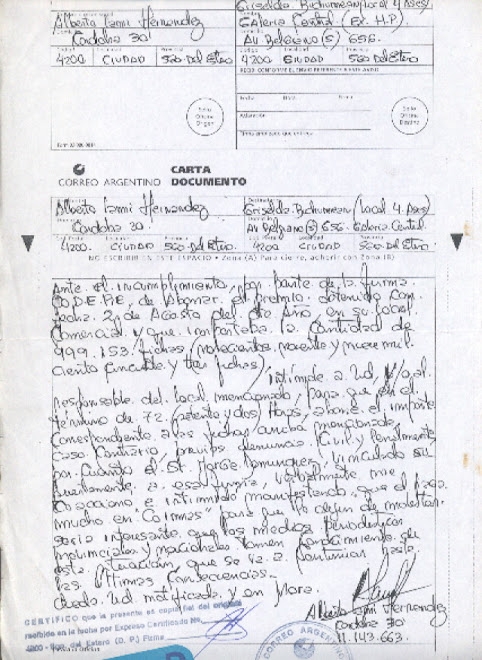 Alberto Iamni Hernandez
Cordoba 30
4200 CIUDAD Sgo Del Estero
Griselda Buchunnean (Local 4 Ases)
GAleria Central (Ex. H.P.)
AV Belgrano (S) 656.
4200 CIUDAD Sgo Del Estero
Fecha Hora Firma
Aclaración
Sello
Oficina
Origen
Sello
Oficina
Destino
CORREO ARGENTINO
CARTA
DOCUMENTO
Alberto Iamni Hernandez
Cordoba 30
4200 CIUDAD Sgo Del Estero
Griselda Buchunnean (Local 4 Ases)
AV Belgrano (S) 656 Galeria Central
4200 CIUDAD Sgo Del Estero
NO ESCRIBIR EN ESTE ESPACIO • Zona (A) Para cierre, adherir con Zona (B)
Ante el incumplimiento, por parte de la firma
CO.D.E.R.E, de Abonar el premio obtenido con
fecha 2 de Agosto del cte Año en su local
Comercial y que importaba la cantidad de
999.153 fichas (novecientos noventa y nueve mil
ciento cincuenta y tres fichas) intimole a Ud, y/o al
responsable del local mencionado, para que en el
término de 72 (setenta y dos) Horas, abone el importe
correspondiente a las fichas arriba mencionadas,
caso contrario, previas denuncias Civil y Penalmente
por cuanto el Sr. Jorge Dominguez, vinculado su
puestamente a esa firma, verbalmente me
Coacciono e intimido manifestando "que el puso
mucho en Coimas" para que lo dejen de molestar.
seria interesante que los medios periodísticos
provinciales y nacionales tomen conocimiento de
esta situacion, que se va a continuar hasta
las últimas consecuencias.
Queda Ud notificada y en Mora.
Alberto Iamni Hernandez
Cordoba 30
11.143.663.
CERTIFICO que la presente es copia fiel del original
recibido en la fecha por Expreso Certificado No.
4200 - Sgo. del Estero (D. P.) Firma
CORREO ARGENTINO